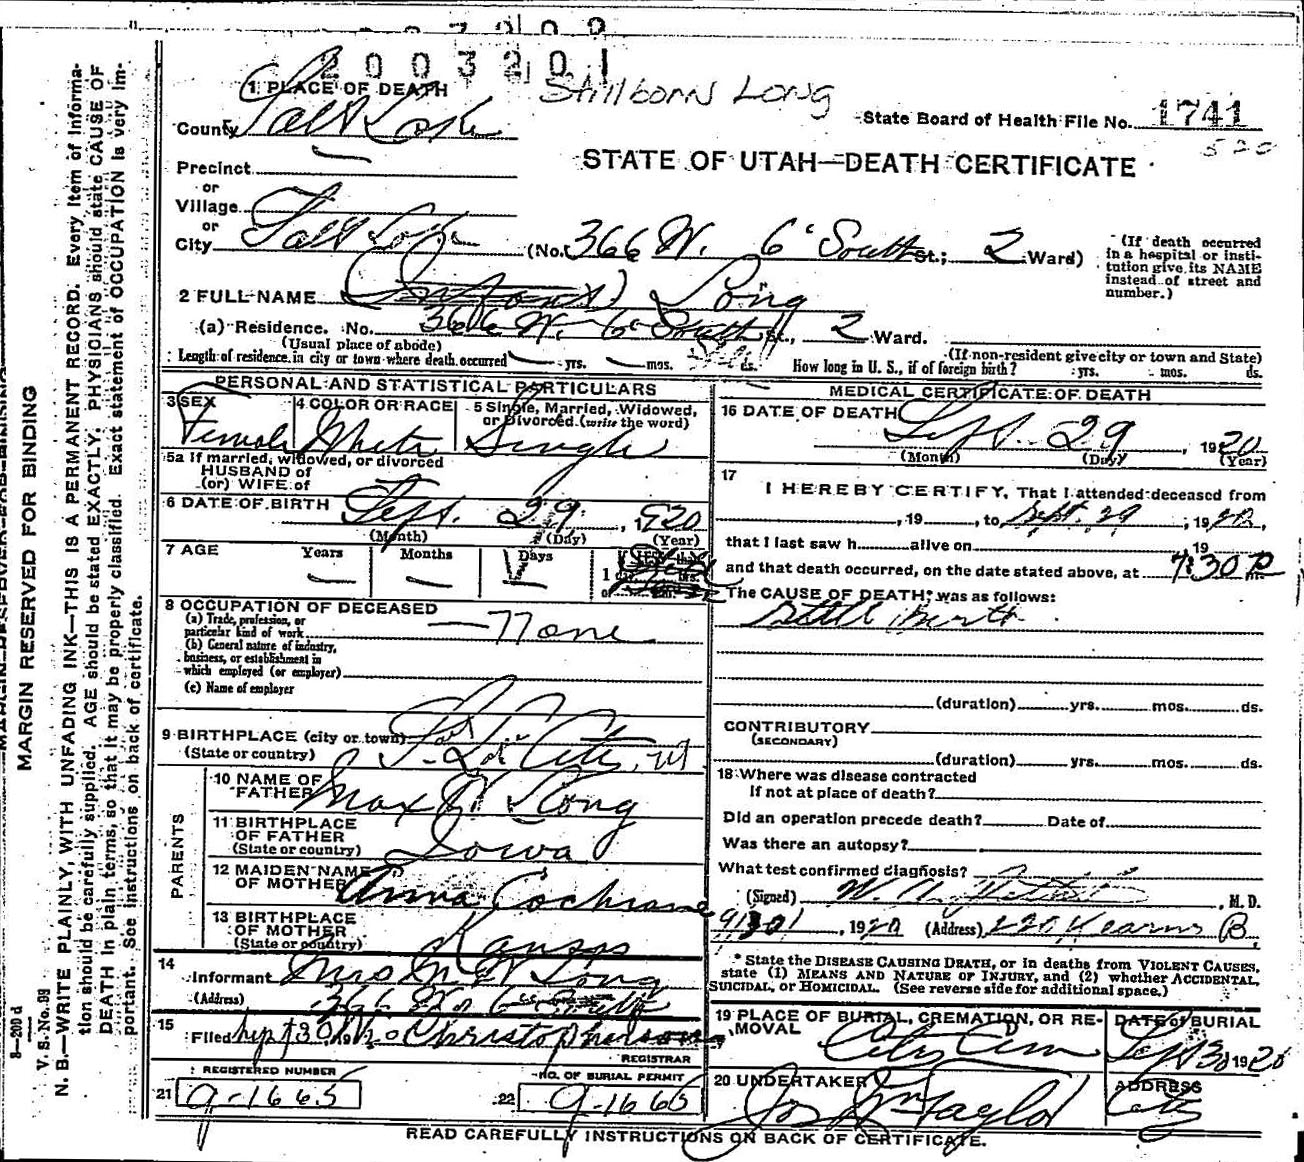 2003201
1 PLACE OF DEATH
Stillborn Long
County Salt Lake
State Board of Health File No. 1741
520
STATE OF UTAH—DEATH CERTIFICATE
Precinct —
or
Village
or
City Salt Lake (No. 366 W. 6 South St.; 2 Ward)
(If death occurred in a hospital or institution give its NAME instead of street and number.)
2 FULL NAME (Infant) Long
(a) Residence. No. 366 W. 6 South St., 2 Ward.
(Usual place of abode) (If non-resident give city or town and State)
Length of residence in city or town where death occurred — yrs. — mos. ds. How long in U. S., if of foreign birth? yrs. mos. ds.
PERSONAL AND STATISTICAL PARTICULARS
3 SEX Female
4 COLOR OR RACE White
5 Single, Married, Widowed, or Divorced (write the word) Single
5a If married, widowed, or divorced
HUSBAND of
(or) WIFE of
6 DATE OF BIRTH Sept. 29, 1920
(Month) (Day) (Year)
7 AGE Years — Months — Days
8 OCCUPATION OF DECEASED
(a) Trade, profession, or particular kind of work — None
(b) General nature of industry, business, or establishment in which employed (or employer)
(c) Name of employer
9 BIRTHPLACE (city or town) S. L. City, Ut
(State or country)
PARENTS
10 NAME OF FATHER Max W Long
11 BIRTHPLACE OF FATHER (State or country) Iowa
12 MAIDEN NAME OF MOTHER Anna Cochrane
13 BIRTHPLACE OF MOTHER (State or country) Kansas
14 Informant Mrs M W Long
(Address) 366 W 6 South
15 Filed Sept 30 Christopherson
REGISTRAR
REGISTERED NUMBER
21 9-1665
NO. OF BURIAL PERMIT
22 9-1665
MEDICAL CERTIFICATE OF DEATH
16 DATE OF DEATH Sept. 29, 1920
(Month) (Day) (Year)
17 I HEREBY CERTIFY, That I attended deceased from
, 19 , to Sept. 29, 1920,
that I last saw h alive on 19
and that death occurred, on the date stated above, at 7:30 P m.
The CAUSE OF DEATH* was as follows:
Still Birth
(duration) yrs. mos. ds.
CONTRIBUTORY
(SECONDARY)
(duration) yrs. mos. ds.
18 Where was disease contracted
if not at place of death?
Did an operation precede death? Date of
Was there an autopsy?
What test confirmed diagnosis?
(Signed) W. , M. D.
9/30, 1920 (Address) 220 Kearns B
* State the DISEASE CAUSING DEATH, or in deaths from VIOLENT CAUSES, state (1) MEANS AND NATURE OF INJURY, and (2) whether ACCIDENTAL, SUICIDAL, or HOMICIDAL. (See reverse side for additional space.)
19 PLACE OF BURIAL, CREMATION, OR REMOVAL City Cem
DATE of BURIAL Sept 30 1920
20 UNDERTAKER Jos Wm Taylor
ADDRESS City
READ CAREFULLY INSTRUCTIONS ON BACK OF CERTIFICATE.
MARGIN RESERVED FOR BINDING
V. S. No. 99
N. B.—WRITE PLAINLY, WITH UNFADING INK—THIS IS A PERMANENT RECORD. Every item of information should be carefully supplied. AGE should be stated EXACTLY. PHYSICIANS should state CAUSE OF DEATH in plain terms, so that it may be properly classified. Exact statement of OCCUPATION is very important. See instructions on back of certificate.